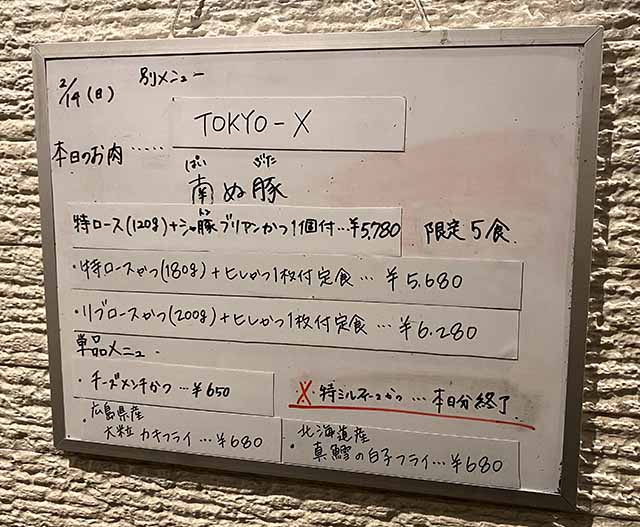 2/14(日) 別メニュー
TOKYO-X
本日のお肉……
ぱい ぶた
南ぬ豚
特ロース(120g)+シャ豚ブリアンかつ1個付…¥5,780 限定5食
・特ロースかつ(180g)+ヒレかつ1枚付定食…¥5,680
・リブロースかつ(200g)+ヒレかつ1枚付定食…¥6,280
単品メニュー
・チーズメンチかつ…¥650
X・特ミルフィーユかつ…本日分終了
・広島県産
大粒カキフライ…¥680
・北海道産
真鱈の白子フライ…¥680